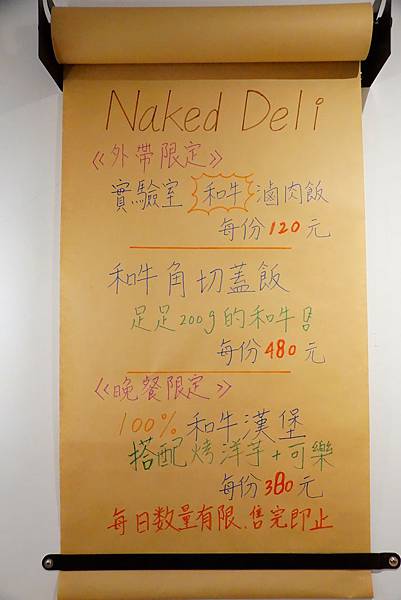 Naked Deli
《外帶限定》
實驗室 和牛 滷肉飯
每份120元
和牛角切蓋飯
足足200g的和牛!
每份480元
《晚餐限定》
100%和牛漢堡
搭配烤洋芋+可樂
每份380元
每日数量有限.售完即止